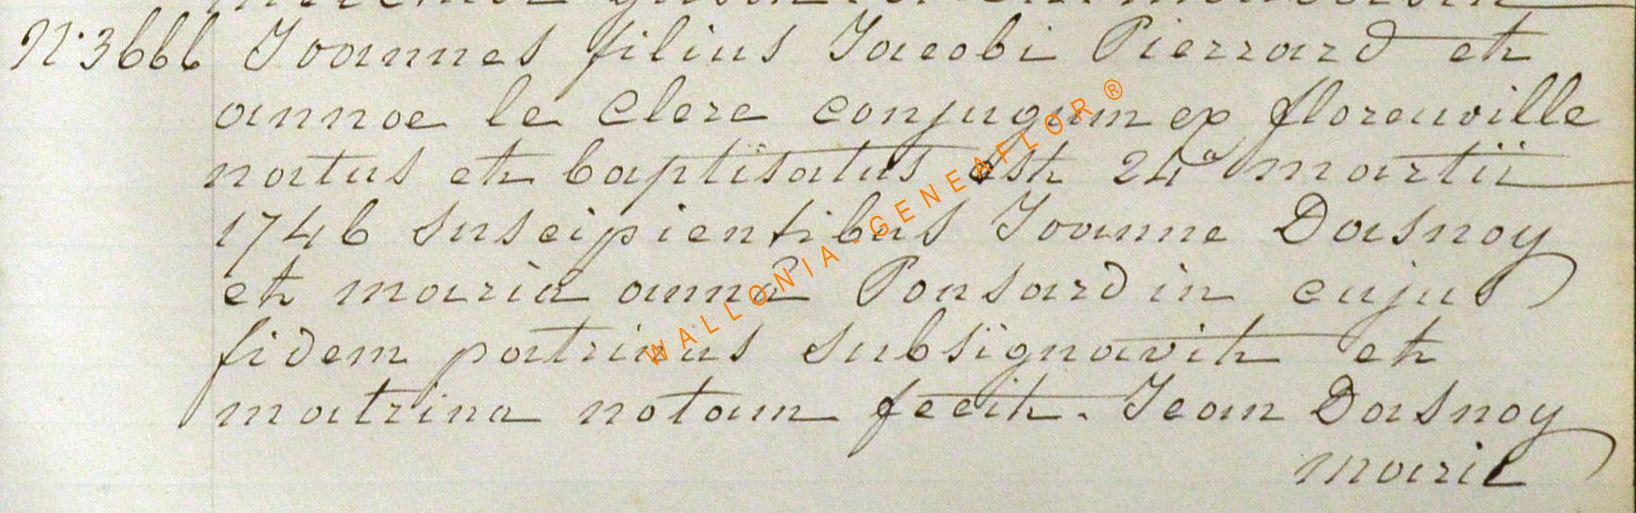 N° 3666 Joannes filius Jacobi Pierrard et
annoe le Clerc conjugum ex florenville
natus et baptisatus est 24a martii
1746 suscipientibus Joanne Dasnoy
et maria anna Ponsardin cujus
fidem patrinus subsignavit et
matrina notam fecit. Jean Dasnoy
marie
WALLONIA-GENEAFLOR ®